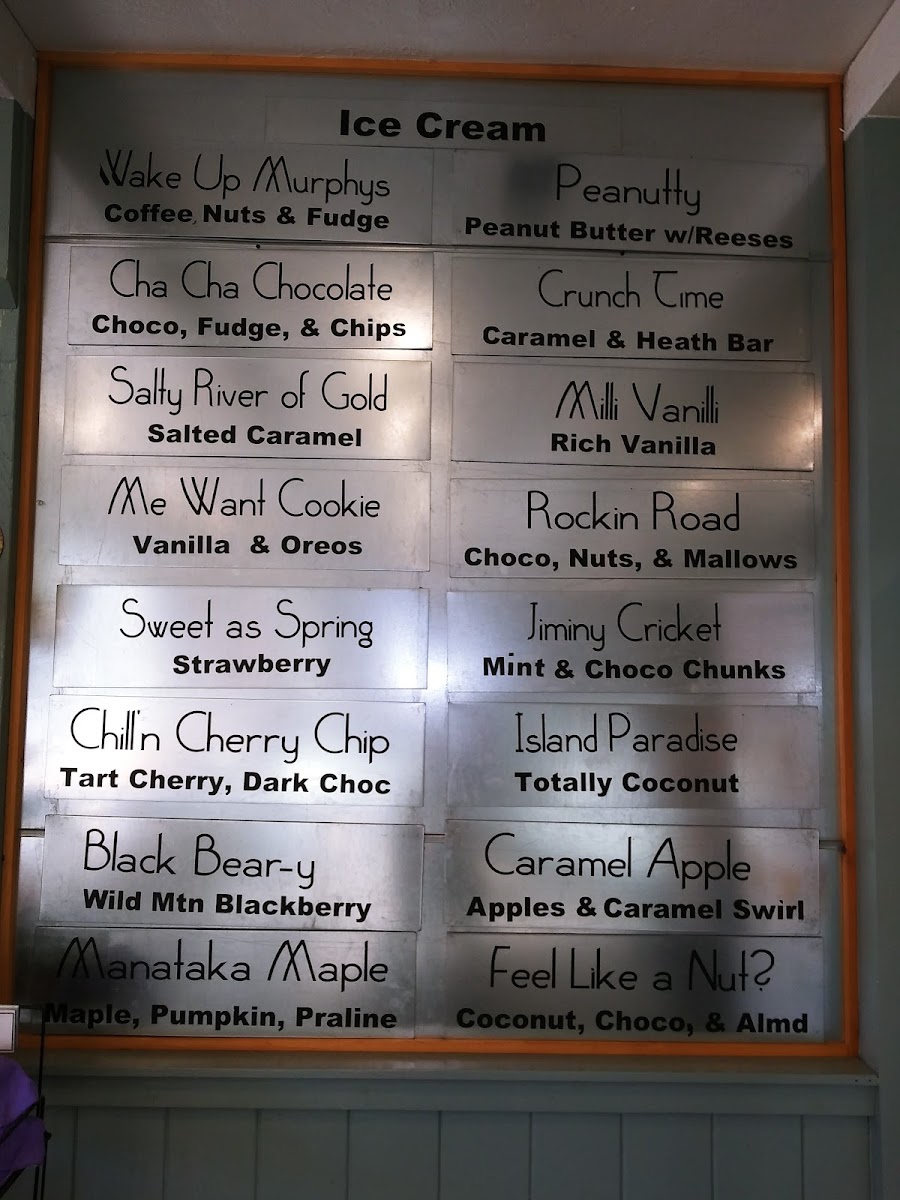 Ice Cream
Wake Up Murphys
Coffee, Nuts & Fudge
Cha Cha Chocolate
Choco, Fudge, & Chips
Salty River of Gold
Salted Caramel
Me Want Cookie
Vanilla & Oreos
Sweet as Spring
Strawberry
Chill'n Cherry Chip
Tart Cherry, Dark Choc
Black Bear-y
Wild Mtn Blackberry
Manataka Maple
Maple, Pumpkin, Praline
Peanutty
Peanut Butter w/Reeses
Crunch Time
Caramel & Heath Bar
Milli Vanilli
Rich Vanilla
Rockin Road
Choco, Nuts, & Mallows
Jiminy Cricket
Mint & Choco Chunks
Island Paradise
Totally Coconut
Caramel Apple
Apples & Caramel Swirl
Feel Like a Nut?
Coconut, Choco, & Almd